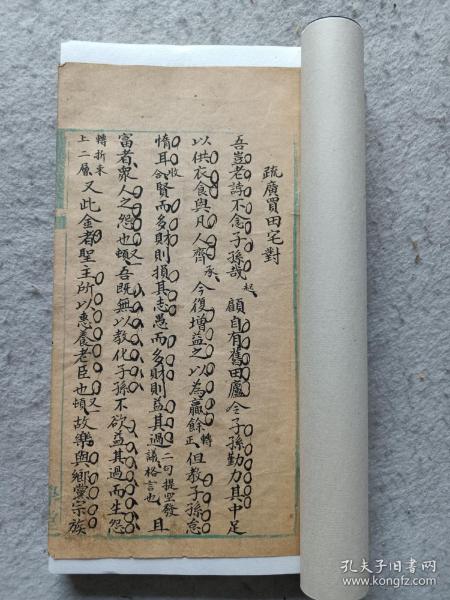 疏廣買田宅對
吾豈老誖不念子孫哉起顧自有舊田廬令子孫勤力其中足
以供衣食與凡人齊承今復增益之以為贏餘正轉但教子孫怠
惰耳合收賢而多財則損其志愚而多財則益其過二句提空發議格言也且
富者眾人之怨也頓又吾既無以教化子孫不欲益其過而生怨
轉折束上二層又此金者聖主所以惠養老臣也頓又故樂與鄉黨宗族
孔夫子旧书网
www.kongfz.com